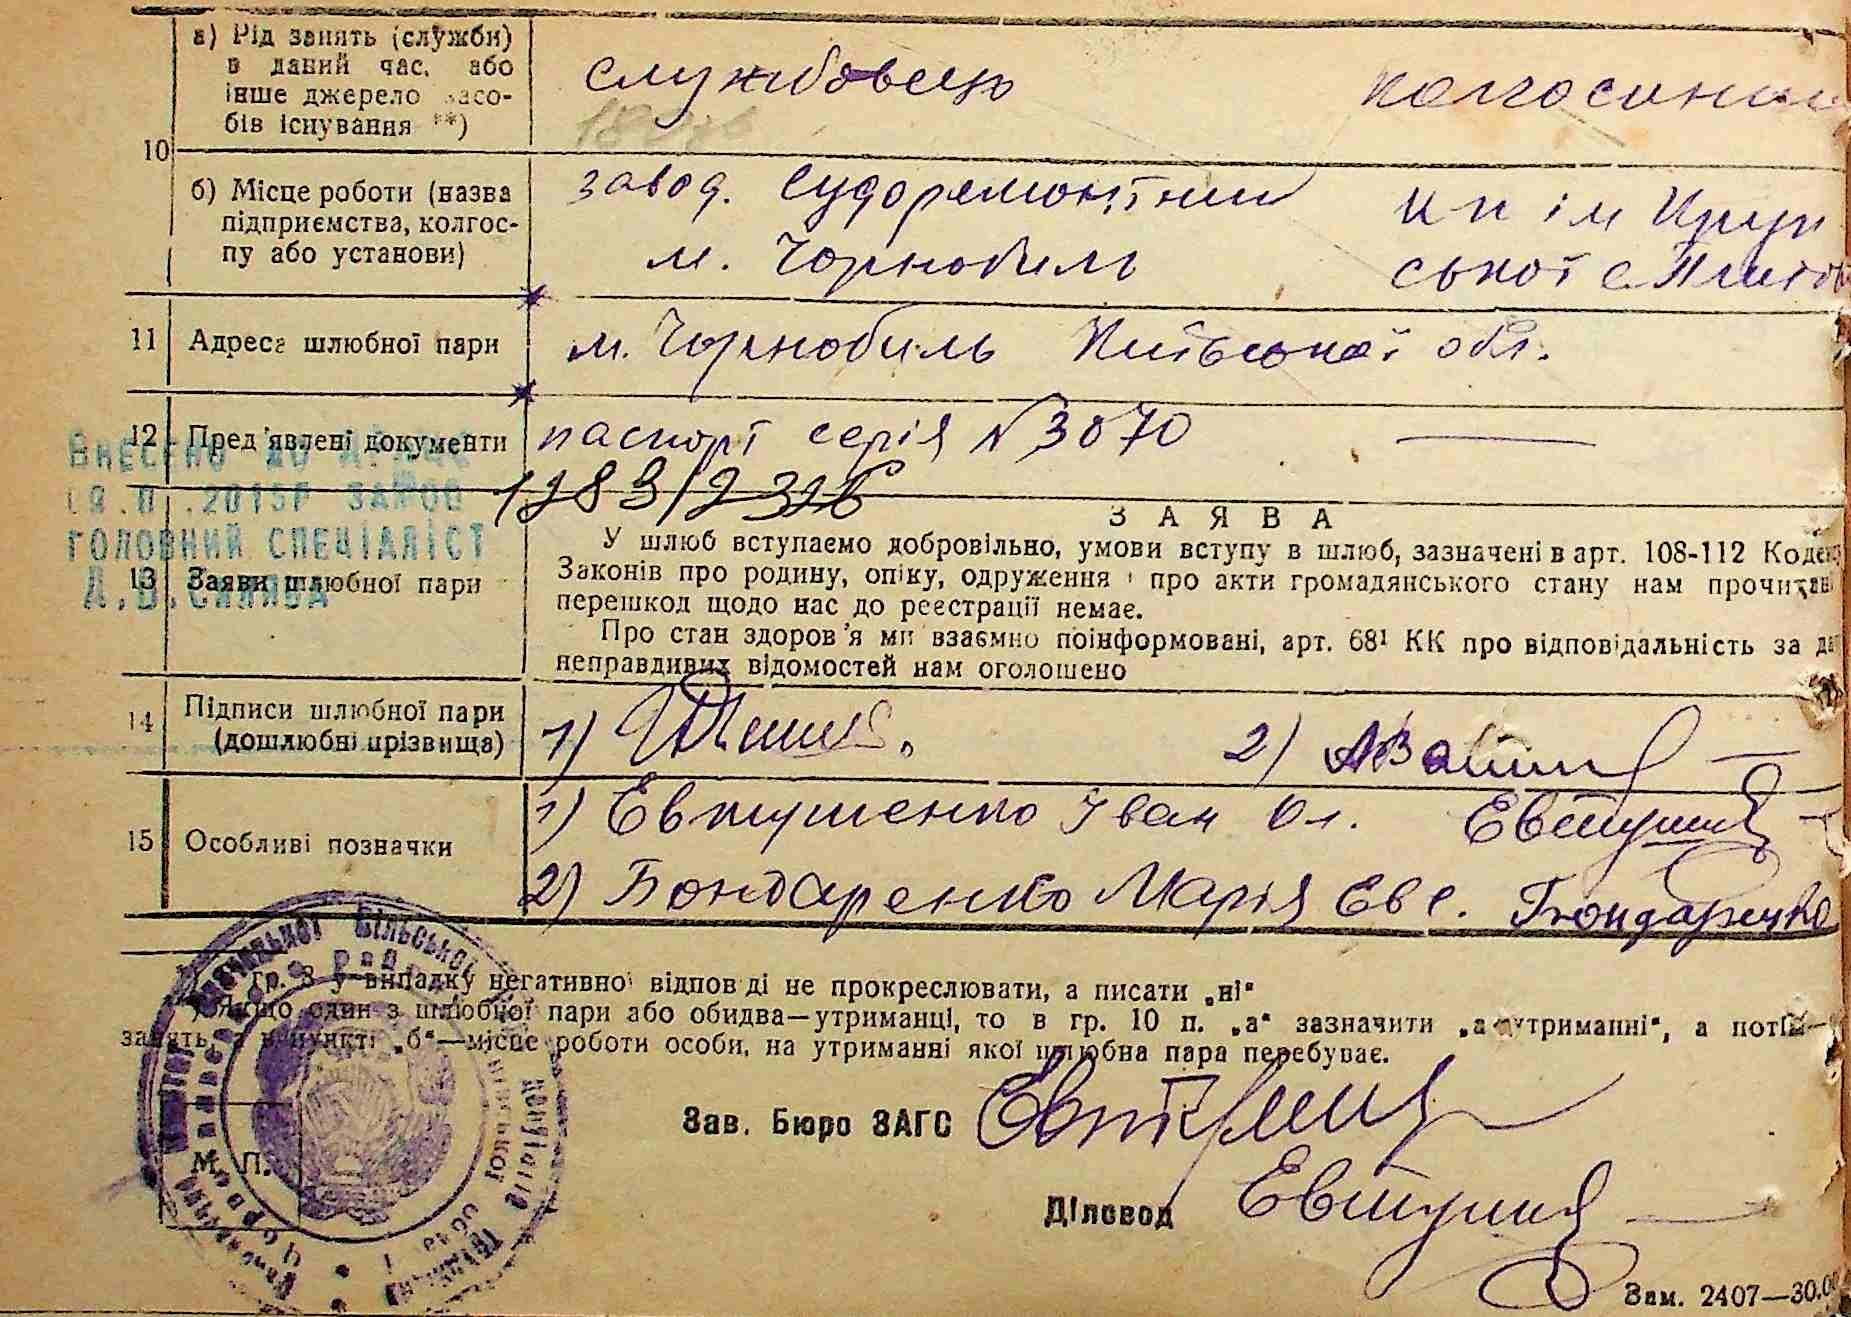 а) Рід занять (служби)
в даний час, або
інше джерело засо-
бів існування **)
службовець
10
б) Місце роботи (назва
підприємства, колгос-
пу або установи)
завод. Судоремонтний
м. Чорнобиль
кп ім Круп
ської с.
11 Адреса шлюбної пари
м. Чорнобиль Київської обл.
12 Пред'явлені документи
паспорт серія № 3070
ГОЛОВНИЙ СПЕЦІАЛІСТ
ЗАЯВА
13 Заяви шлюбної пари
У шлюб вступаємо добровільно, умови вступу в шлюб, зазначені в арт. 108-112
Законів про родину, опіку, одруження і про акти громадянського стану нам
перешкод щодо нас до реєстрації немає.
Про стан здоров'я ми взаємно поінформовані, арт. 68¹ КК про відповідальність за
неправдивих відомостей нам оголошено
14 Підписи шлюбної пари
(дошлюбні прізвища)
1)
2)
15 Особливі позначки
1) Евтушенко Іван Ол.
2) Бондаренко Марія Евс. Бондаренко
гр. 8 у випадку негативної відповіді не прокреслювати, а писати „ні“
Якщо один з шлюбної пари або обидва—утриманці, то в гр. 10 п. „а“ зазначити
занять, в пункті „б“—місце роботи особи, на утриманні якої шлюбна пара перебуває.
Зав. Бюро ЗАГС
М. П.
Діловод
Зам. 2407—30.0